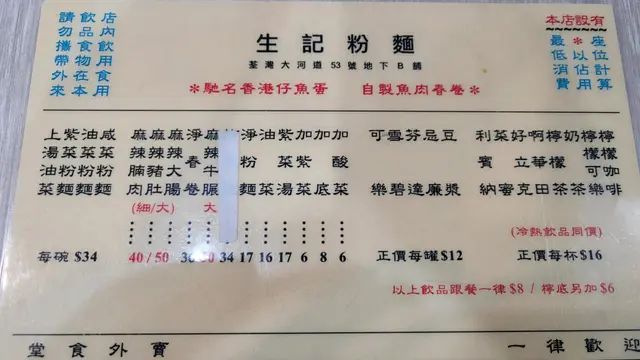 請勿攜帶外來
飲品食物在本
店內飲用食用
生記粉麵
荃灣大河道53號地下B舖
*馳名香港仔魚蛋 自製魚肉春卷*
本店設有
最低消費
*以佔用
座位計算
上湯油菜
紫菜粉麵
油菜粉麵
咸菜粉麵
每碗 $34
麻辣腩肉
麻辣豬肚
麻辣大腸
(細/大)
40 / 50
淨春卷
麻辣牛 大
34
淨粉麵 17
油菜 16
紫菜湯 17
加菜 6
加底 8
加酸菜 6
可樂
雪碧
芬達
忌廉
豆漿
正價每罐$12
利賓納
菜蜜
好立克
啊華田
檸檬茶
奶茶
檸檬可樂
檸檬咖啡
(冷熱飲品同價)
正價每杯$16
以上飲品跟餐一律$8 / 檸底另加$6
堂食外賣
一律歡迎